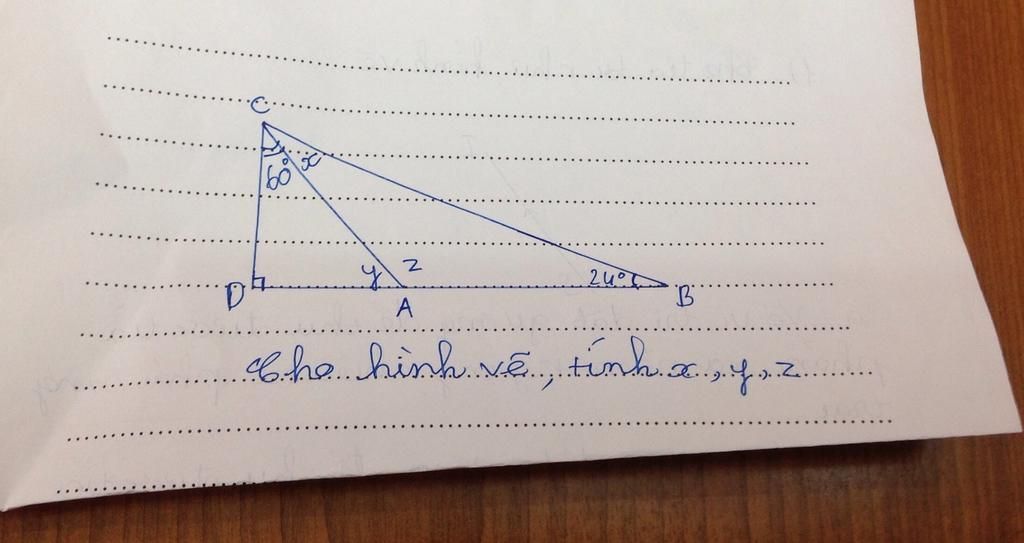 C
60° x
y z 24°
D A B
Cho hình vẽ, tính x, y, z